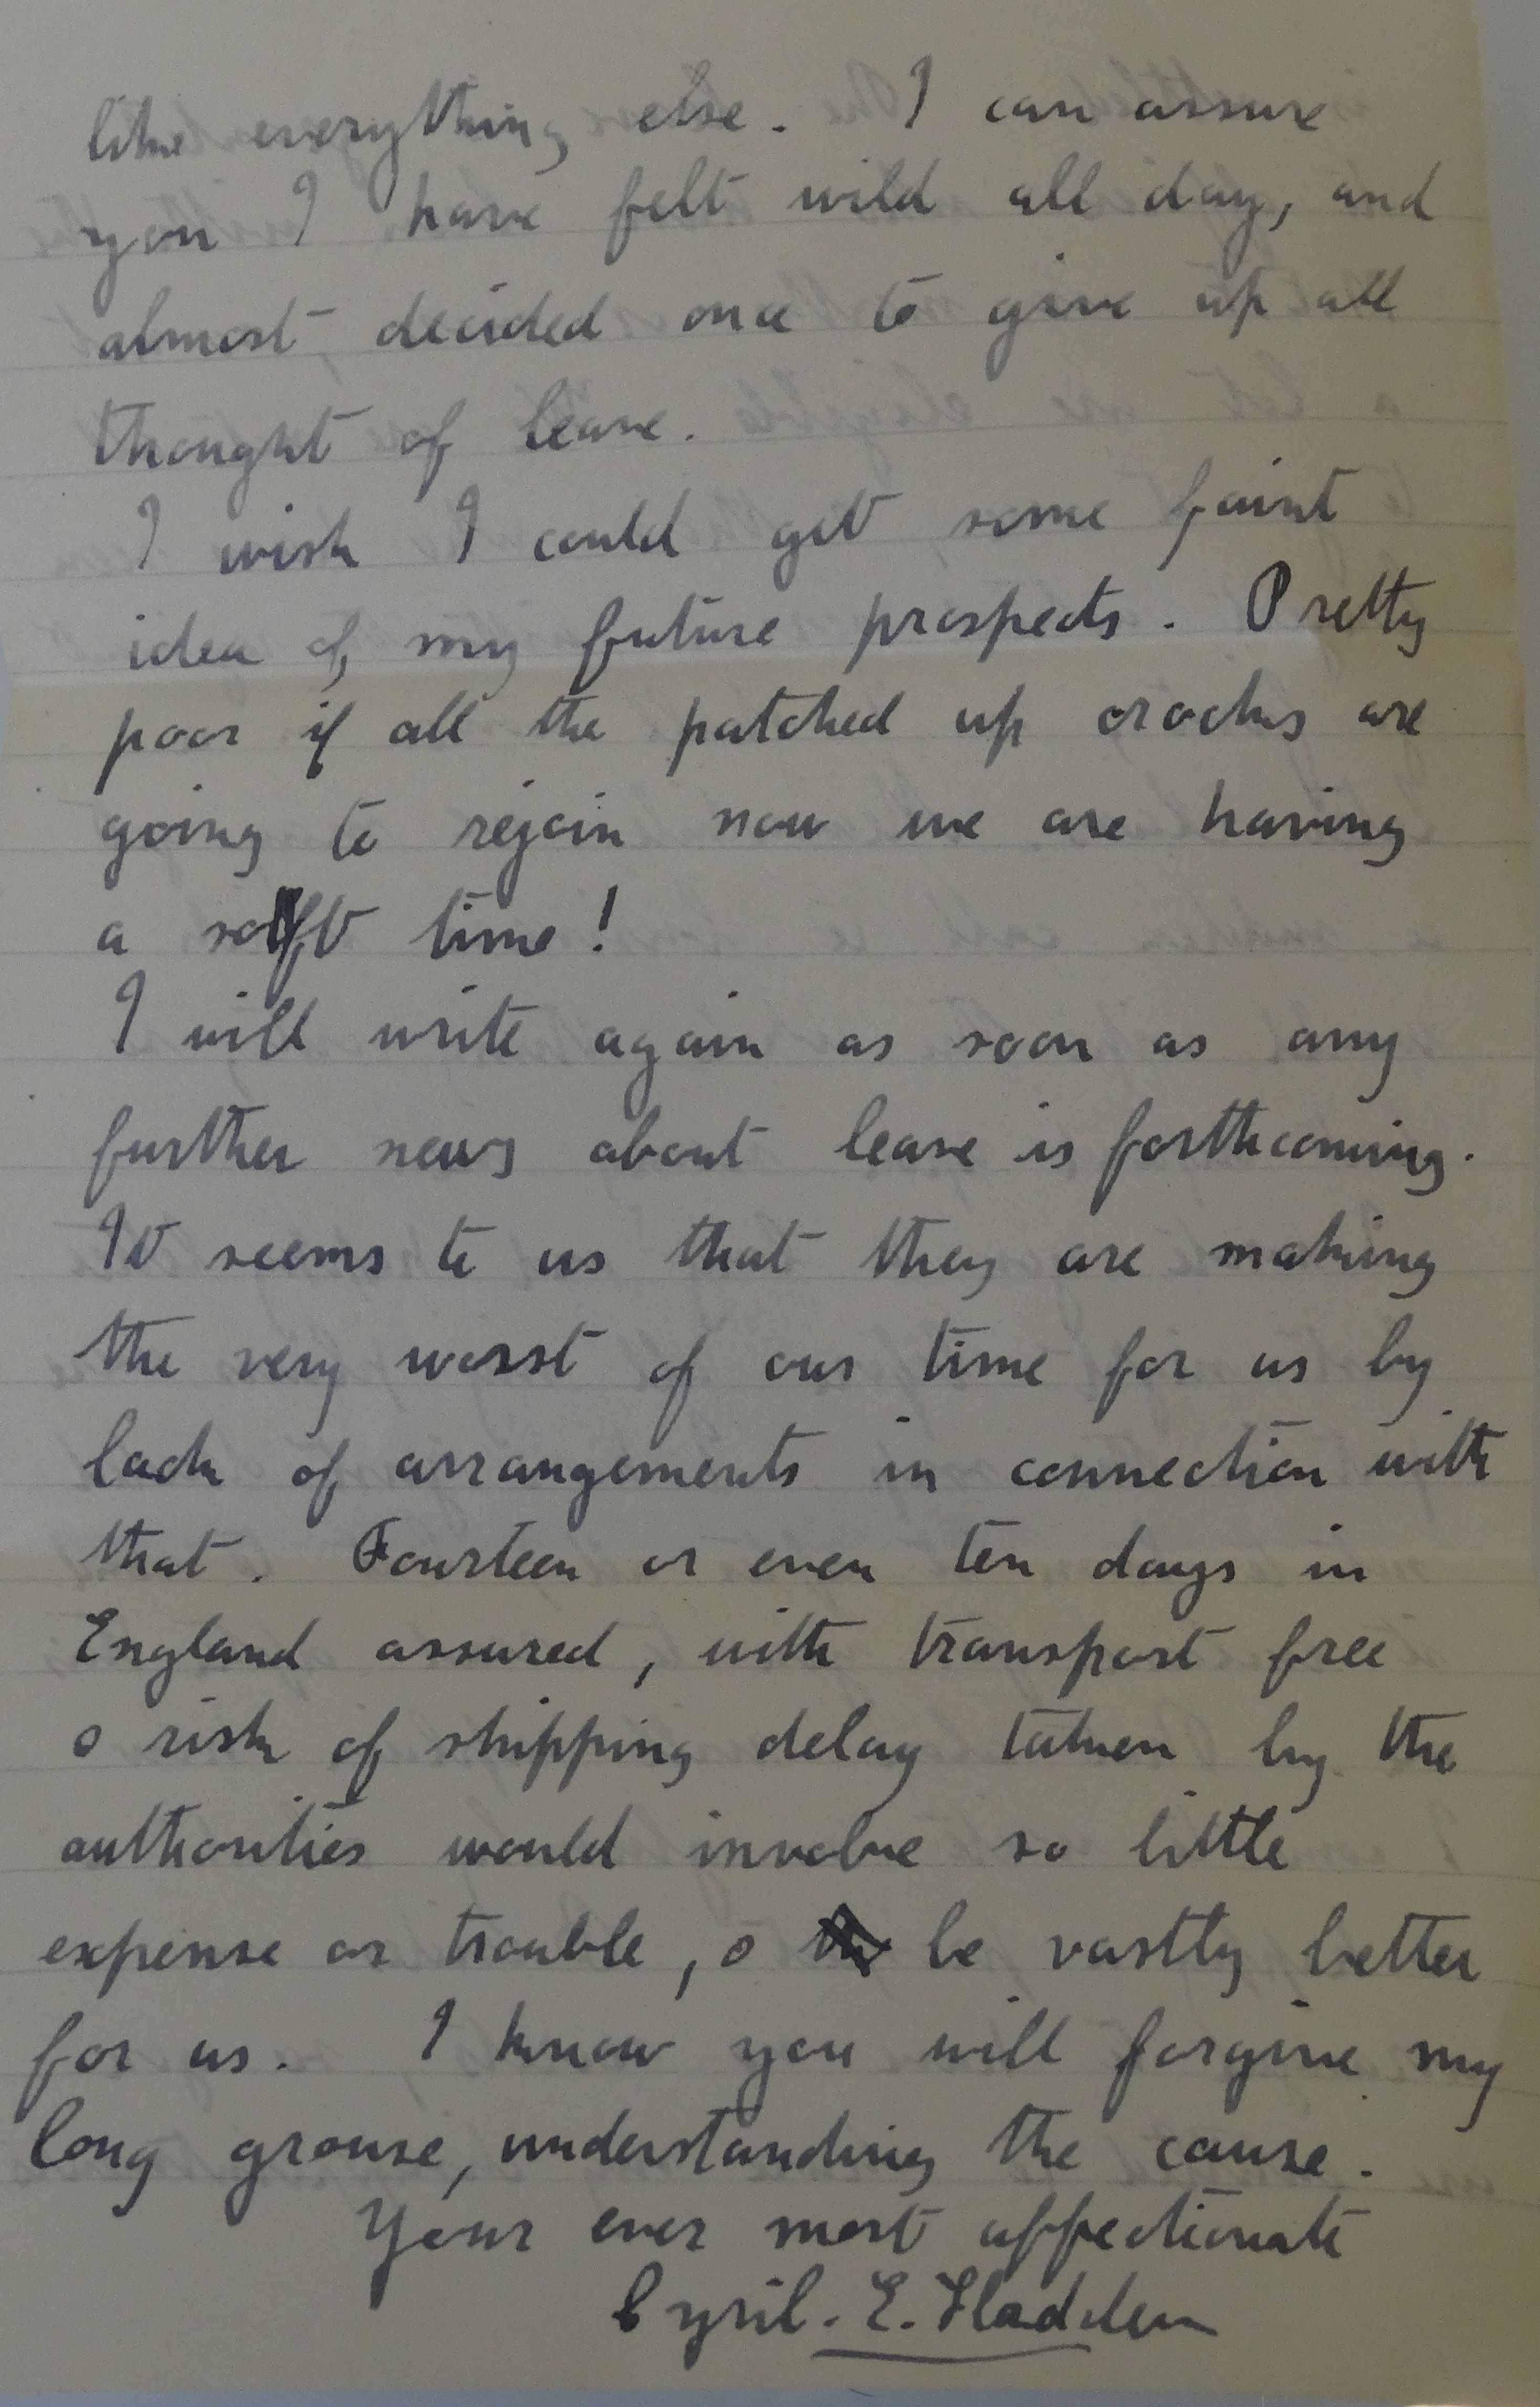 like everything else. I can assure
you I have felt wild all day, and
almost decided once to give up all
thought of leave.
I wish I could get some faint
idea of my future prospects. Pretty
poor if all the patched up crocks are
going to rejoin now we are having
a soft time!
I will write again as soon as any
further news about leave is forthcoming.
It seems to us that they are making
the very worst of our time for us by
lack of arrangements in connection with
that. Fourteen or even ten days in
England assured, with transport free
o risk of shipping delay taken by the
authorities would involve so little
expense or trouble, o be vastly better
for us. I know you will forgive my
long grouse, understanding the cause.
Your ever most affectionate
Cyril. E. Sladden